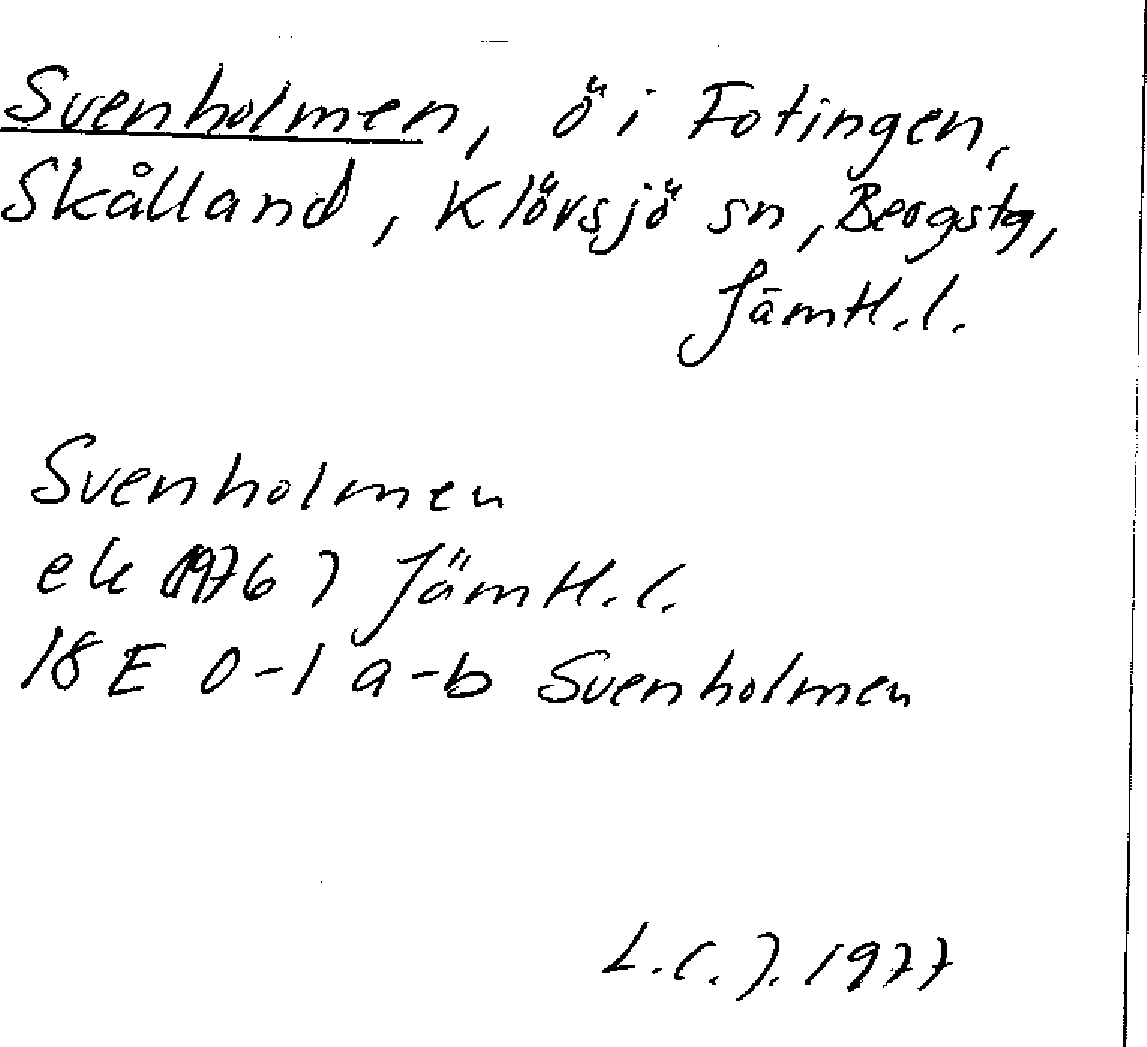 Svenholmen, ö i Fotingen,
Skålland, Klövsjö sn, Bergstg,
Jämtl.l.
Svenholmen
ek 1976 J Jämtl.l.
18 E 0-1 a-b Svenholmen
L.C.J. 1977